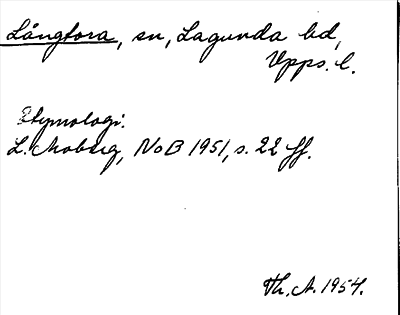 Långtora, sn, Lagunda hd,
Upps. l.
Etymologi.
L. Moberg, NoB 1951, s. 22 ff.
Th. A. 1954.